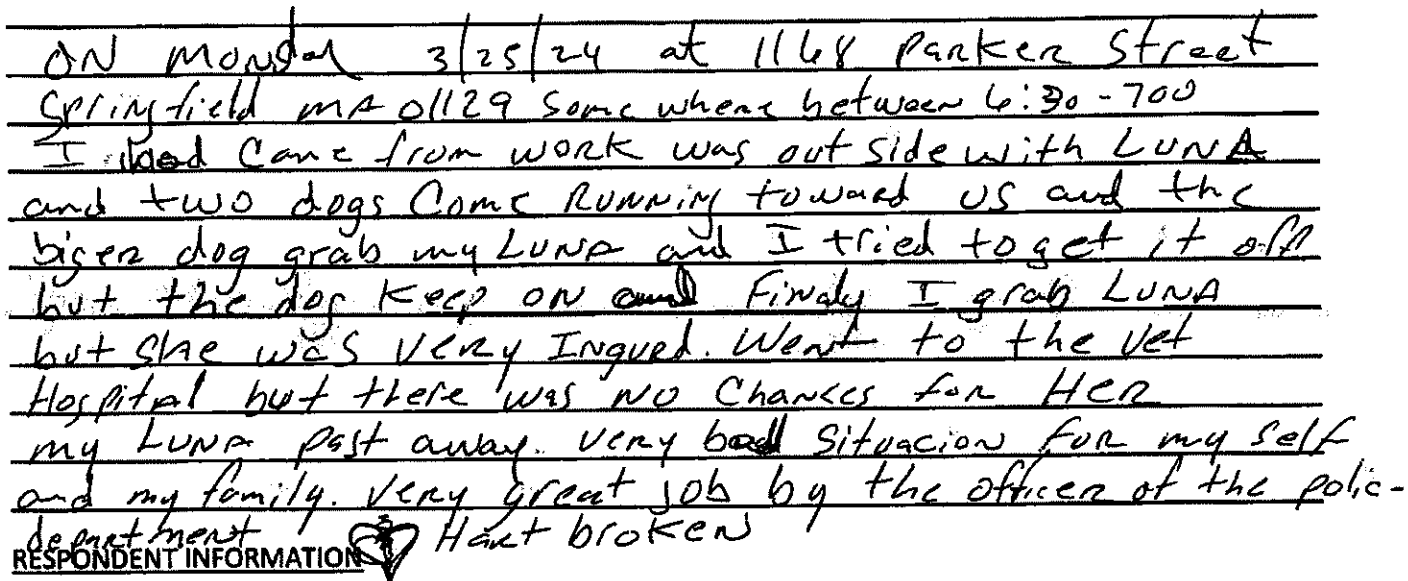 ON Monday 3/25/24 at 1168 Parker Street
Springfield MA 01129 Some where between 6:30-700
I Came from work was out side with LUNA
and two dogs Come Running toward us and the
biger dog grab my LUNA and I tried to get it off
but the dog Keep ON and Finaly I grab LUNA
but she was very Ingued. Went to the vet
Hospital but there was NO Chances for Her
my LUNA past away. very bad Situacion for my self
and my family. Very great job by the officer of the polic-
department Hart broken
RESPONDENT INFORMATION